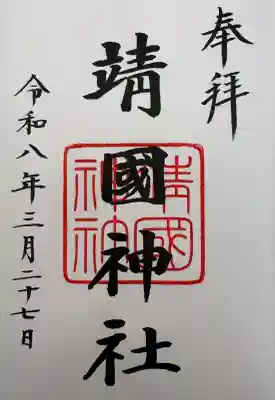 奉拝
靖國神社
令和八年三月二十七日